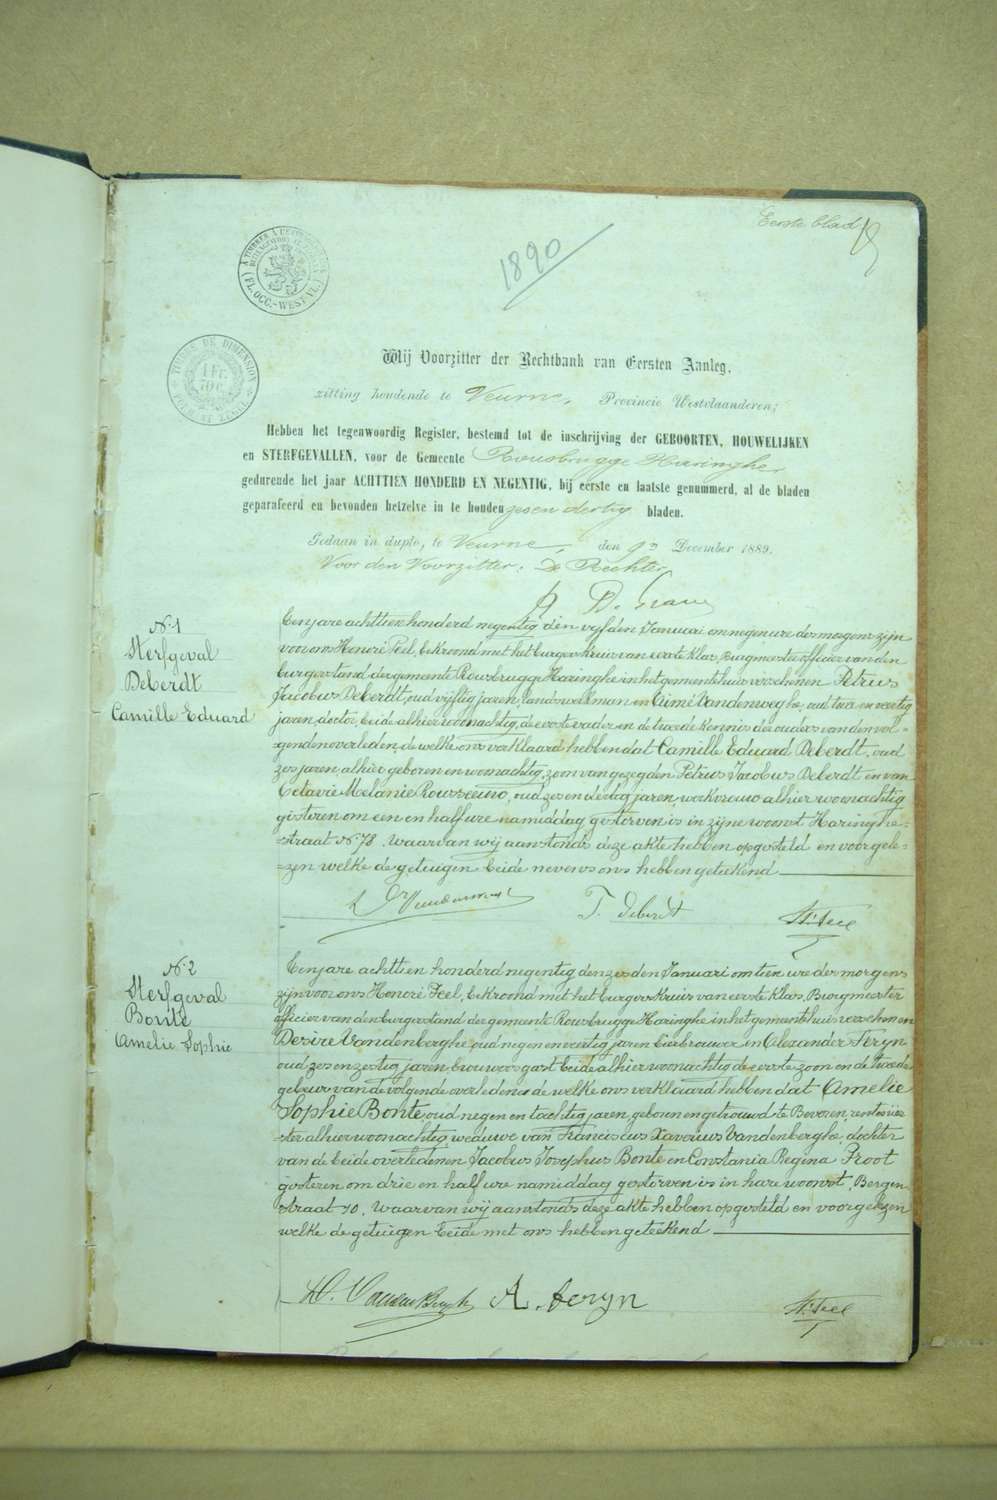 Eerste blad
1890
(FL. OCC.-WEST VL.)
TIMBRE DE DIMENSION
1 Fr.
70 c.
Wij Voorzitter der Rechtbank van Eersten Aanleg,
zitting houdende te Veurne, Provincie Westvlaanderen;
Hebben het tegenwoordig Register, bestemd tot de inschrijving der GEBOORTEN, HOUWELIJKEN
en STERFGEVALLEN, voor de Gemeente Rousbrugge Haringhe
gedurende het jaar ACHTTIEN HONDERD EN NEGENTIG, bij eerste en laatste genummerd, al de bladen
geparafeerd en bevonden hetzelve in te houden zes en dertig bladen.
Gedaan in duplo, te Veurne, den December 1889.
Voor den Voorzitter: De Rechter
N.1
Sterfgeval
Deberdt
Camille Eduard
Een jare achttien honderd negentig den vyfden Januari om negen ure des morgens zijn
voor ons Honoré Feel, bekroond met het burgerskruis van eerste klas, Burgmeester officier van den
burgerstand der gemeente Rousbrugge Haringhe in het gemeentehuis verschenen Petrus
Jacobus Deberdt, oud vijftig jaren, landswerkman en Aimé Vandenweghe, oud twee en veertig
jaren, doctor, beide alhier woonachtig, de eerste vader en de tweede kennis der ouders van den vol-
genden overleden, de welke ons verklaard hebben dat Camille Eduard Deberdt, oud
zes jaren, alhier geboren en woonachtig, zoon van gezegden Petrus Jacobus Deberdt en van
Octavie Melanie Rousseeuw, oud zes en dertig jaren, werkvrouw alhier woonachtig
gisteren om een en half ure namiddag gestorven is in zijne woonst Haringhe=
=straat N.78. Waarvan wij aanstonds deze akte hebben opgesteld en voorgele=
=zen welke de getuigen beide nevens ons hebben geteekend
T. Deberdt
H. Feel
N.2
Sterfgeval
Bonte
Amelie Sophie
Een jare achttien honderd negentig den zesden Januari om tien ure des morgens
zijn voor ons Honoré Feel, bekroond met het burgerskruis van eerste klas, Burgmeester
officier van den burgerstand der gemeente Rousbrugge Haringhe in het gemeentehuis verschenen
Desire Vandenberghe, oud negen en veertig jaren bierbrouwer en Alexander Feryn
oud zes en zestig jaren, brouwersgast beide alhier woonachtig de eerste zoon en de tweede
gebuur van de volgende overledene de welke ons verklaard hebben dat Amelie
Sophie Bonte, oud negen en tachtig jaren, geboren en getrouwd te Beveren, rentenier=
ster alhier woonachtig, weduwe van Franciscus Xaverius Vandenberghe, dochter
van de beide overledenen Jacobus Josephus Bonte en Constantia Regina Proot
gisteren om drie en half ure namiddag gestorven is in hare woonst, Bergen
straat 70. Waarvan wij aanstonds deze akte hebben opgesteld en voorgelezen
welke de getuigen beide met ons hebben geteekend
A. Feryn
H. Feel